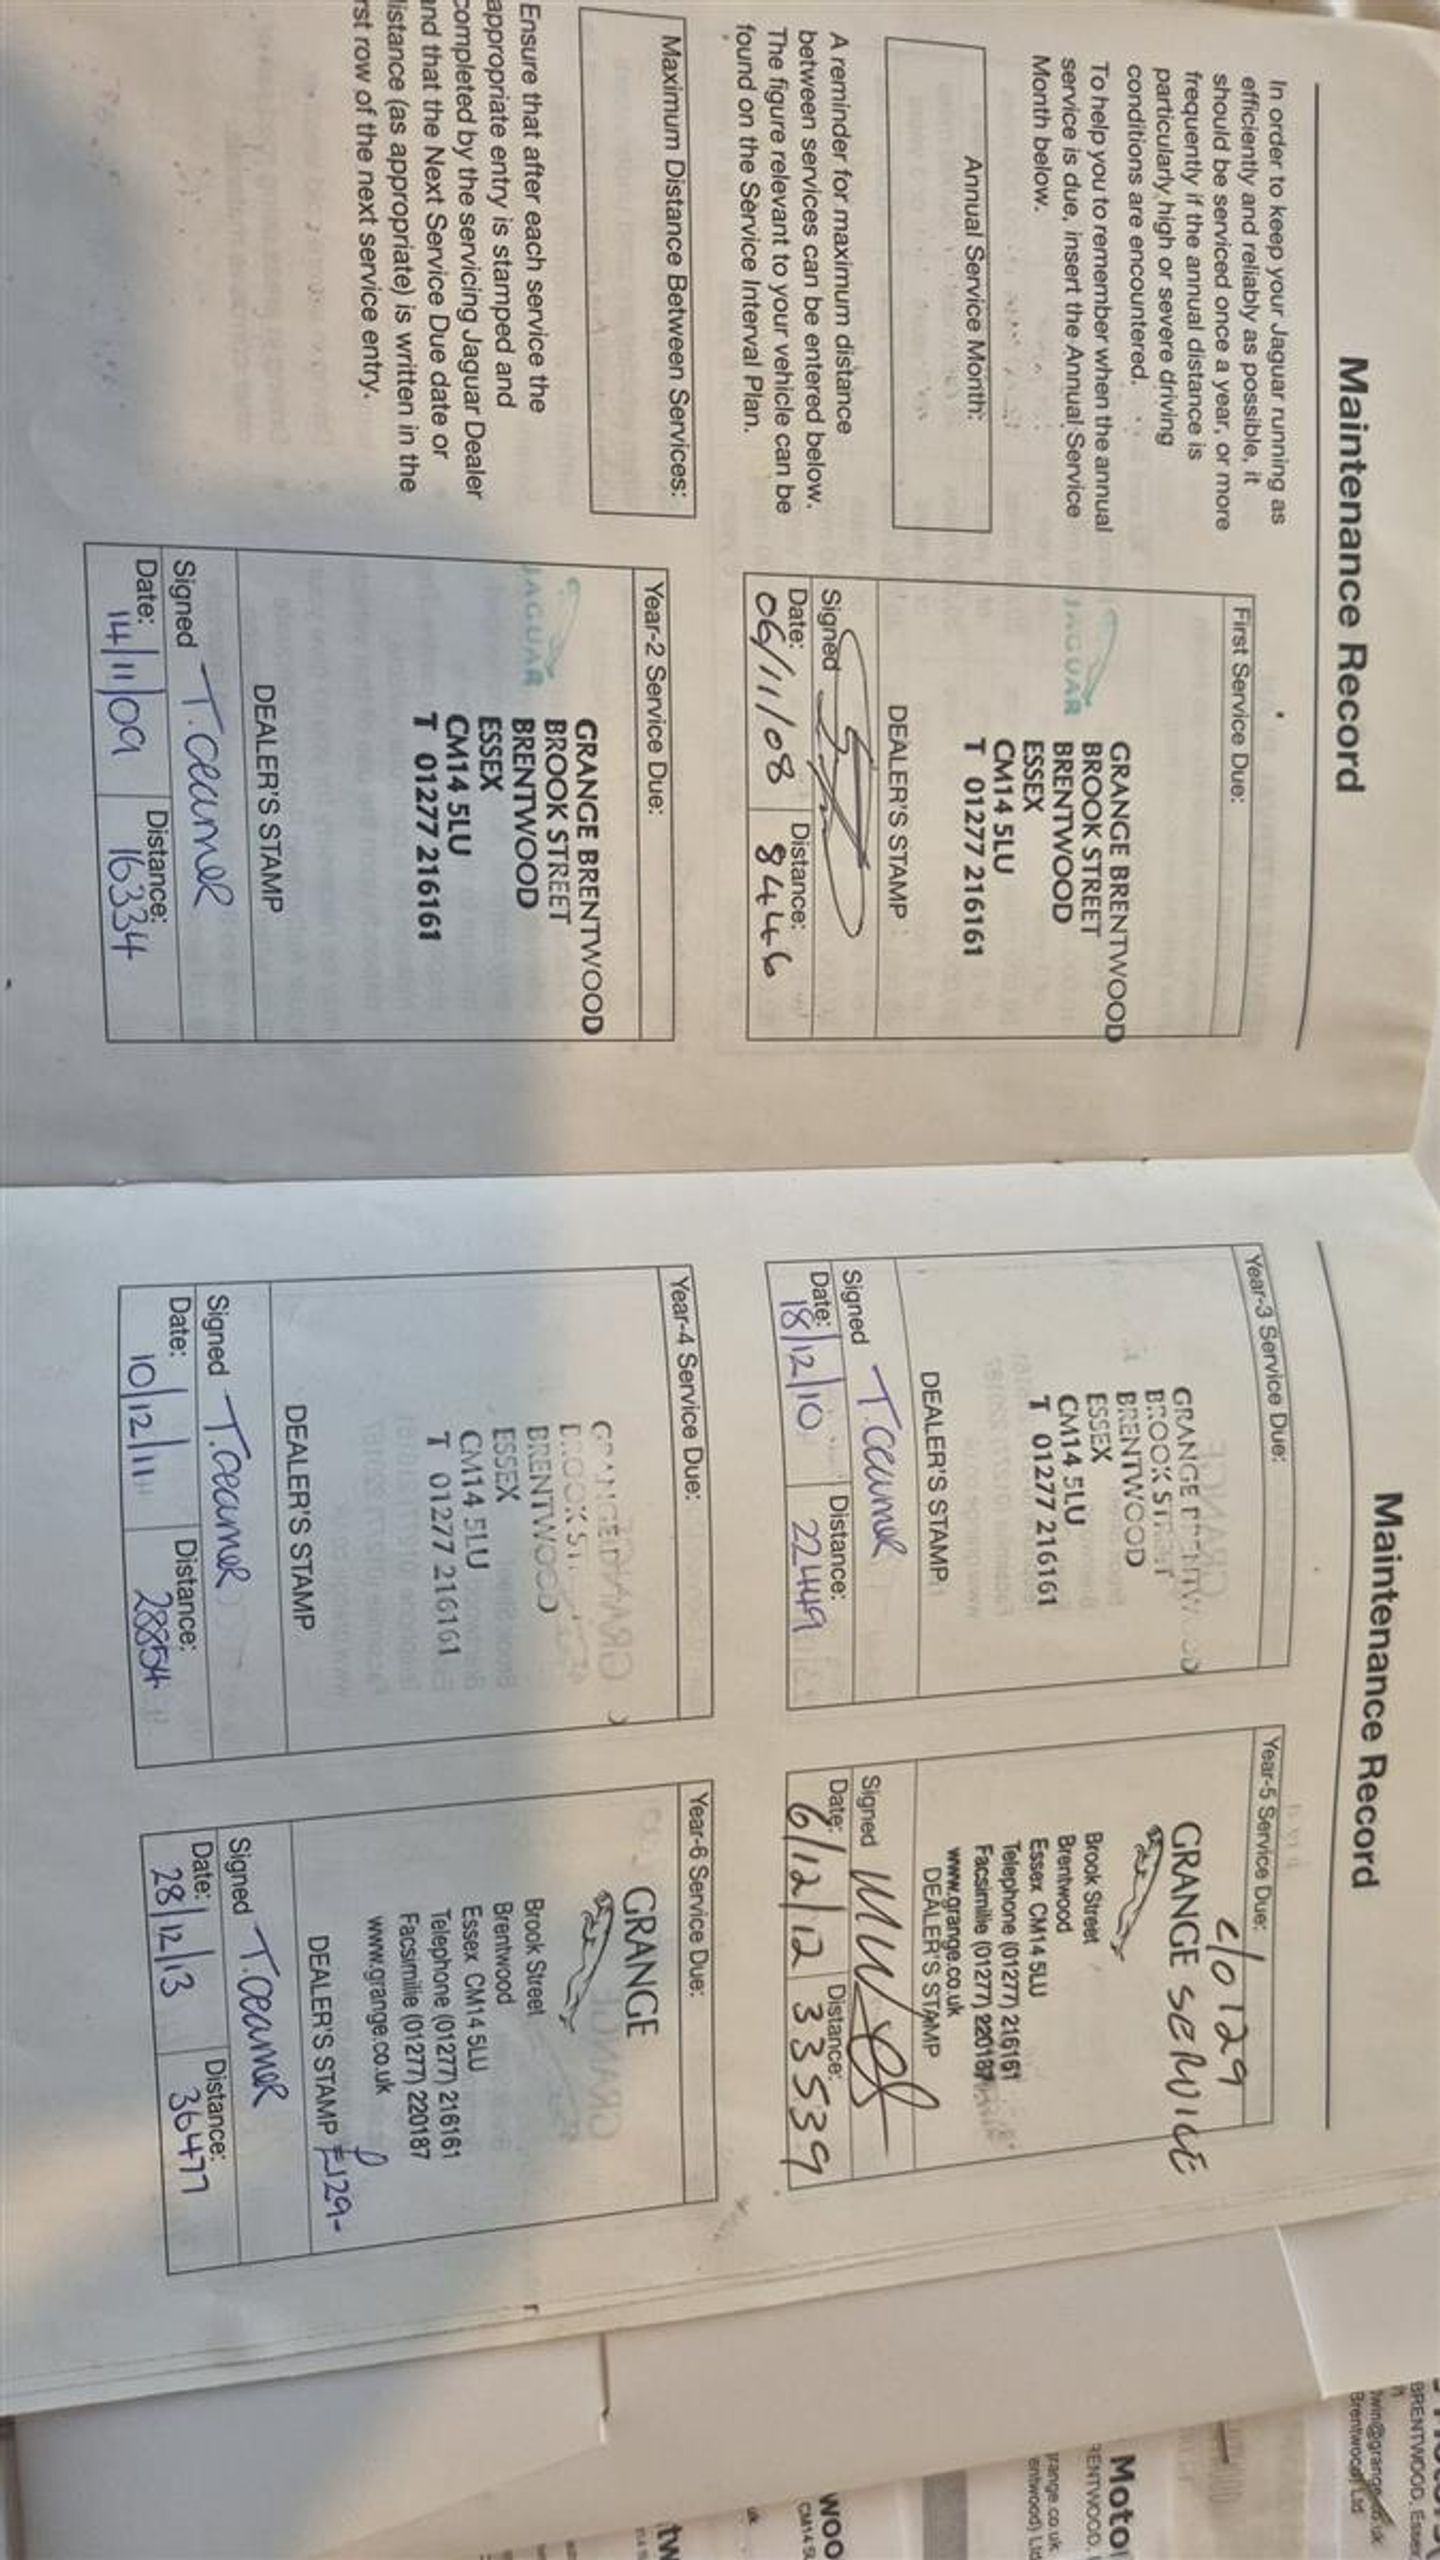 Maintenance Record
In order to keep your Jaguar running as
efficiently and reliably as possible, it
should be serviced once a year, or more
frequently if the annual distance is
particularly high or severe driving
conditions are encountered.
To help you to remember when the annual
service is due, insert the Annual Service
Month below.
Annual Service Month:
A reminder for maximum distance
between services can be entered below.
The figure relevant to your vehicle can be
found on the Service Interval Plan.
Maximum Distance Between Services:
Ensure that after each service the
appropriate entry is stamped and
completed by the servicing Jaguar Dealer
and that the Next Service Due date or
distance (as appropriate) is written in the
rst row of the next service entry.
First Service Due:
JAGUAR
GRANGE BRENTWOOD
BROOK STREET
BRENTWOOD
ESSEX
CM14 5LU
T 01277 216161
DEALER'S STAMP
Signed
Date: 06/11/08 Distance: 8446
Year-2 Service Due:
JAGUAR
GRANGE BRENTWOOD
BROOK STREET
BRENTWOOD
ESSEX
CM14 5LU
T 01277 216161
DEALER'S STAMP
Signed
Date: 14/11/09 Distance: 16334
Maintenance Record
Year-3 Service Due:
GRANGE BRENTWOOD
BROOK STREET
BRENTWOOD
ESSEX
CM14 5LU
T 01277 216161
DEALER'S STAMP
Signed
Date: 18/12/10 Distance: 22449
Year-4 Service Due:
GRANGE
BROOK ST
BRENTWOOD
ESSEX
CM14 5LU
T 01277 216161
DEALER'S STAMP
Signed
Date: 10/12/11 Distance: 28854
Year-5 Service Due:
£/0129
GRANGE SERVICE
Brook Street
Brentwood
Essex CM14 5LU
Telephone (01277) 216161
Facsimilie (01277) 220187
www.grange.co.uk
DEALER'S STAMP
Signed
Date: 6/12/12 Distance: 33539
Year-6 Service Due:
GRANGE
Brook Street
Brentwood
Essex CM14 5LU
Telephone (01277) 216161
Facsimilie (01277) 220187
www.grange.co.uk
DEALER'S STAMP £129-
Signed
Date: 28/12/13 Distance: 36477
BRENTWOOD, Essex
Brentwood) Ltd
Motor